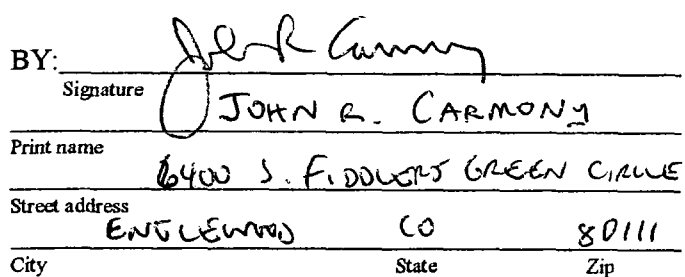 BY: John R Carmony
Signature
JOHN R. CARMONY
Print name
6400 S. FIDDLERS GREEN CIRCLE
Street address
ENGLEWOOD CO 80111
City State Zip